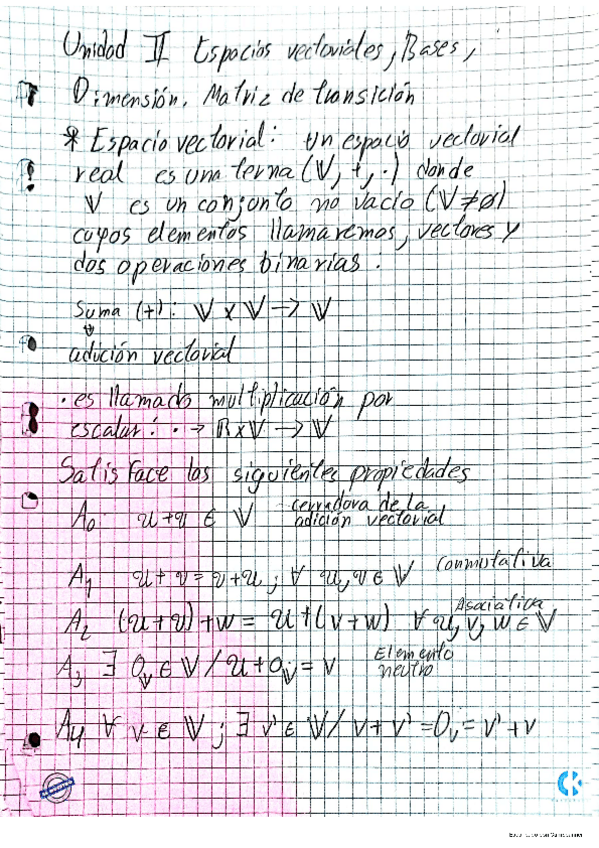 Unidad II Espacios vectoriales, Bases,
Dimensión, Matriz de transición
* Espacio vectorial: Un espacio vectorial
real es una terna (V, +, ·) donde
V es un conjunto no vacío (V ≠ ∅)
cuyos elementos llamaremos, vectores y
dos operaciones binarias:
Suma (+): V x V → V
adición vectorial
· es llamado multiplicación por
escalar: · → ℝ x V → V
Satisface las siguientes propiedades
A₀ u + v ∈ V cerradova de la adición vectorial
A₁ u + v = v + u ; ∀ u, v ∈ V conmutativa
A₂ (u + v) + w = u + (v + w) ∀ u, v, w ∈ V Asociativa
A₃ ∃ 0ᵥ ∈ V / u + 0ᵥ = v Elemento neutro
A₄ ∀ v ∈ V ; ∃ v' ∈ V / v + v' = 0ᵥ = v' + v
CK